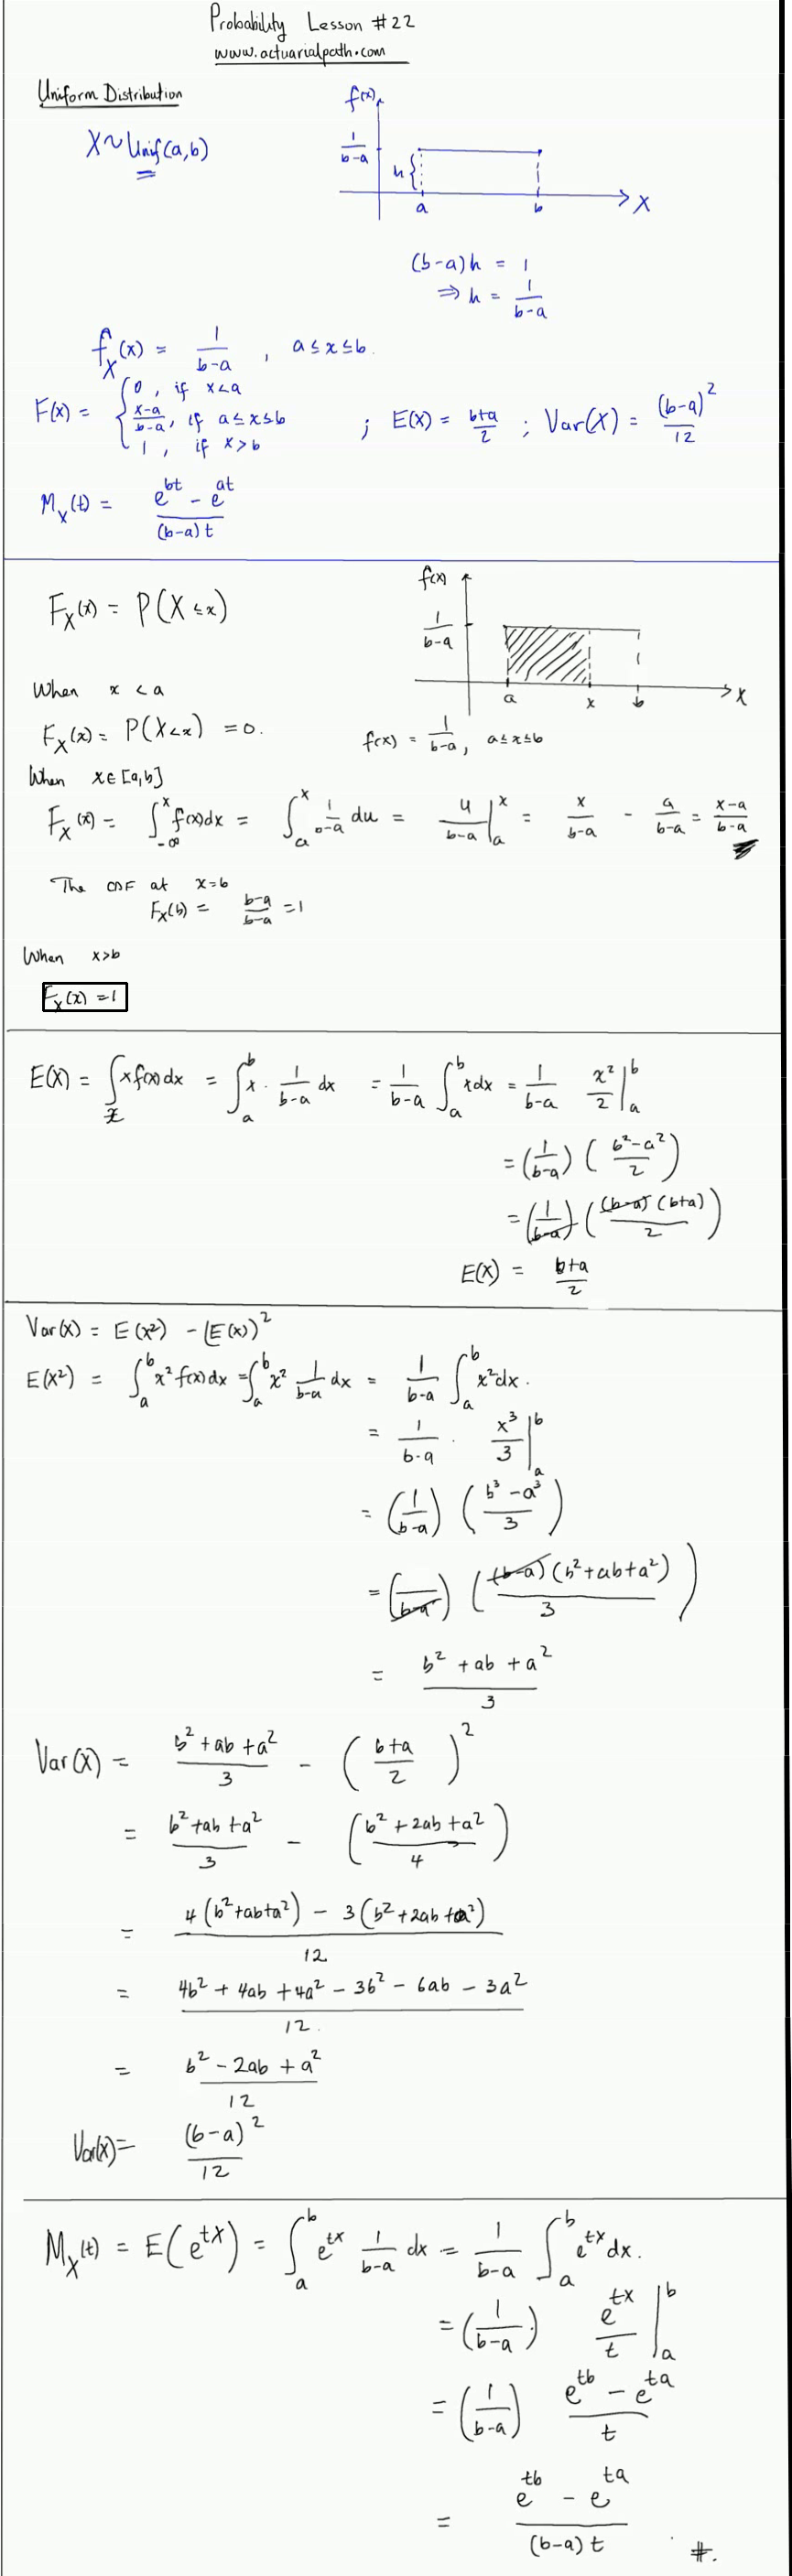 Probability Lesson #22
www.actuarialpath.com
Uniform Distribution
X ~ Unif(a,b)
f(x)
1/(b-a)
h{
a b X
(b-a)h = 1
⇒ h = 1/(b-a)
f_X(x) = 1/(b-a) , a ≤ x ≤ b.
F(x) = { 0, if x<a
(x-a)/(b-a), if a ≤ x ≤ b
1, if x>b
; E(X) = (b+a)/2 ; Var(X) = (b-a)^2/12
M_X(t) = (e^{bt} - e^{at})/((b-a)t)
F_X(x) = P(X ≤ x)
f(x)
1/(b-a)
a x b X
f(x) = 1/(b-a), a ≤ x ≤ b
When x < a
F_X(x) = P(X<x) = 0.
When x ∈ [a,b]
F_X(x) = ∫_{-∞}^{x} f(x)dx = ∫_a^x 1/(b-a) du = u/(b-a) |_a^x = x/(b-a) - a/(b-a) = (x-a)/(b-a)
The CDF at x=b
F_X(b) = (b-a)/(b-a) = 1
When x>b
F_X(x) = 1
E(X) = ∫_x x f(x) dx = ∫_a^b x · 1/(b-a) dx = 1/(b-a) ∫_a^b x dx = 1/(b-a) x^2/2 |_a^b
= (1/(b-a)) ((b^2-a^2)/2)
= (1/(b-a)) ((b-a)(b+a)/2)
E(X) = (b+a)/2
Var(X) = E(X^2) - (E(X))^2
E(X^2) = ∫_a^b x^2 f(x) dx = ∫_a^b x^2 1/(b-a) dx = 1/(b-a) ∫_a^b x^2 dx.
= 1/(b-a) · x^3/3 |_a^b
= (1/(b-a)) ((b^3-a^3)/3)
= (1/(b-a)) ((b-a)(b^2+ab+a^2)/3)
= (b^2+ab+a^2)/3
Var(X) = (b^2+ab+a^2)/3 - ((b+a)/2)^2
= (b^2+ab+a^2)/3 - ((b^2+2ab+a^2)/4)
= (4(b^2+ab+a^2) - 3(b^2+2ab+a^2))/12
= (4b^2+4ab+4a^2-3b^2-6ab-3a^2)/12.
= (b^2-2ab+a^2)/12
Var(X) = (b-a)^2/12
M_X(t) = E(e^{tX}) = ∫_a^b e^{tx} 1/(b-a) dx = 1/(b-a) ∫_a^b e^{tx} dx.
= (1/(b-a)) e^{tx}/t |_a^b
= (1/(b-a)) (e^{tb} - e^{ta})/t
= (e^{tb} - e^{ta})/((b-a)t) #.